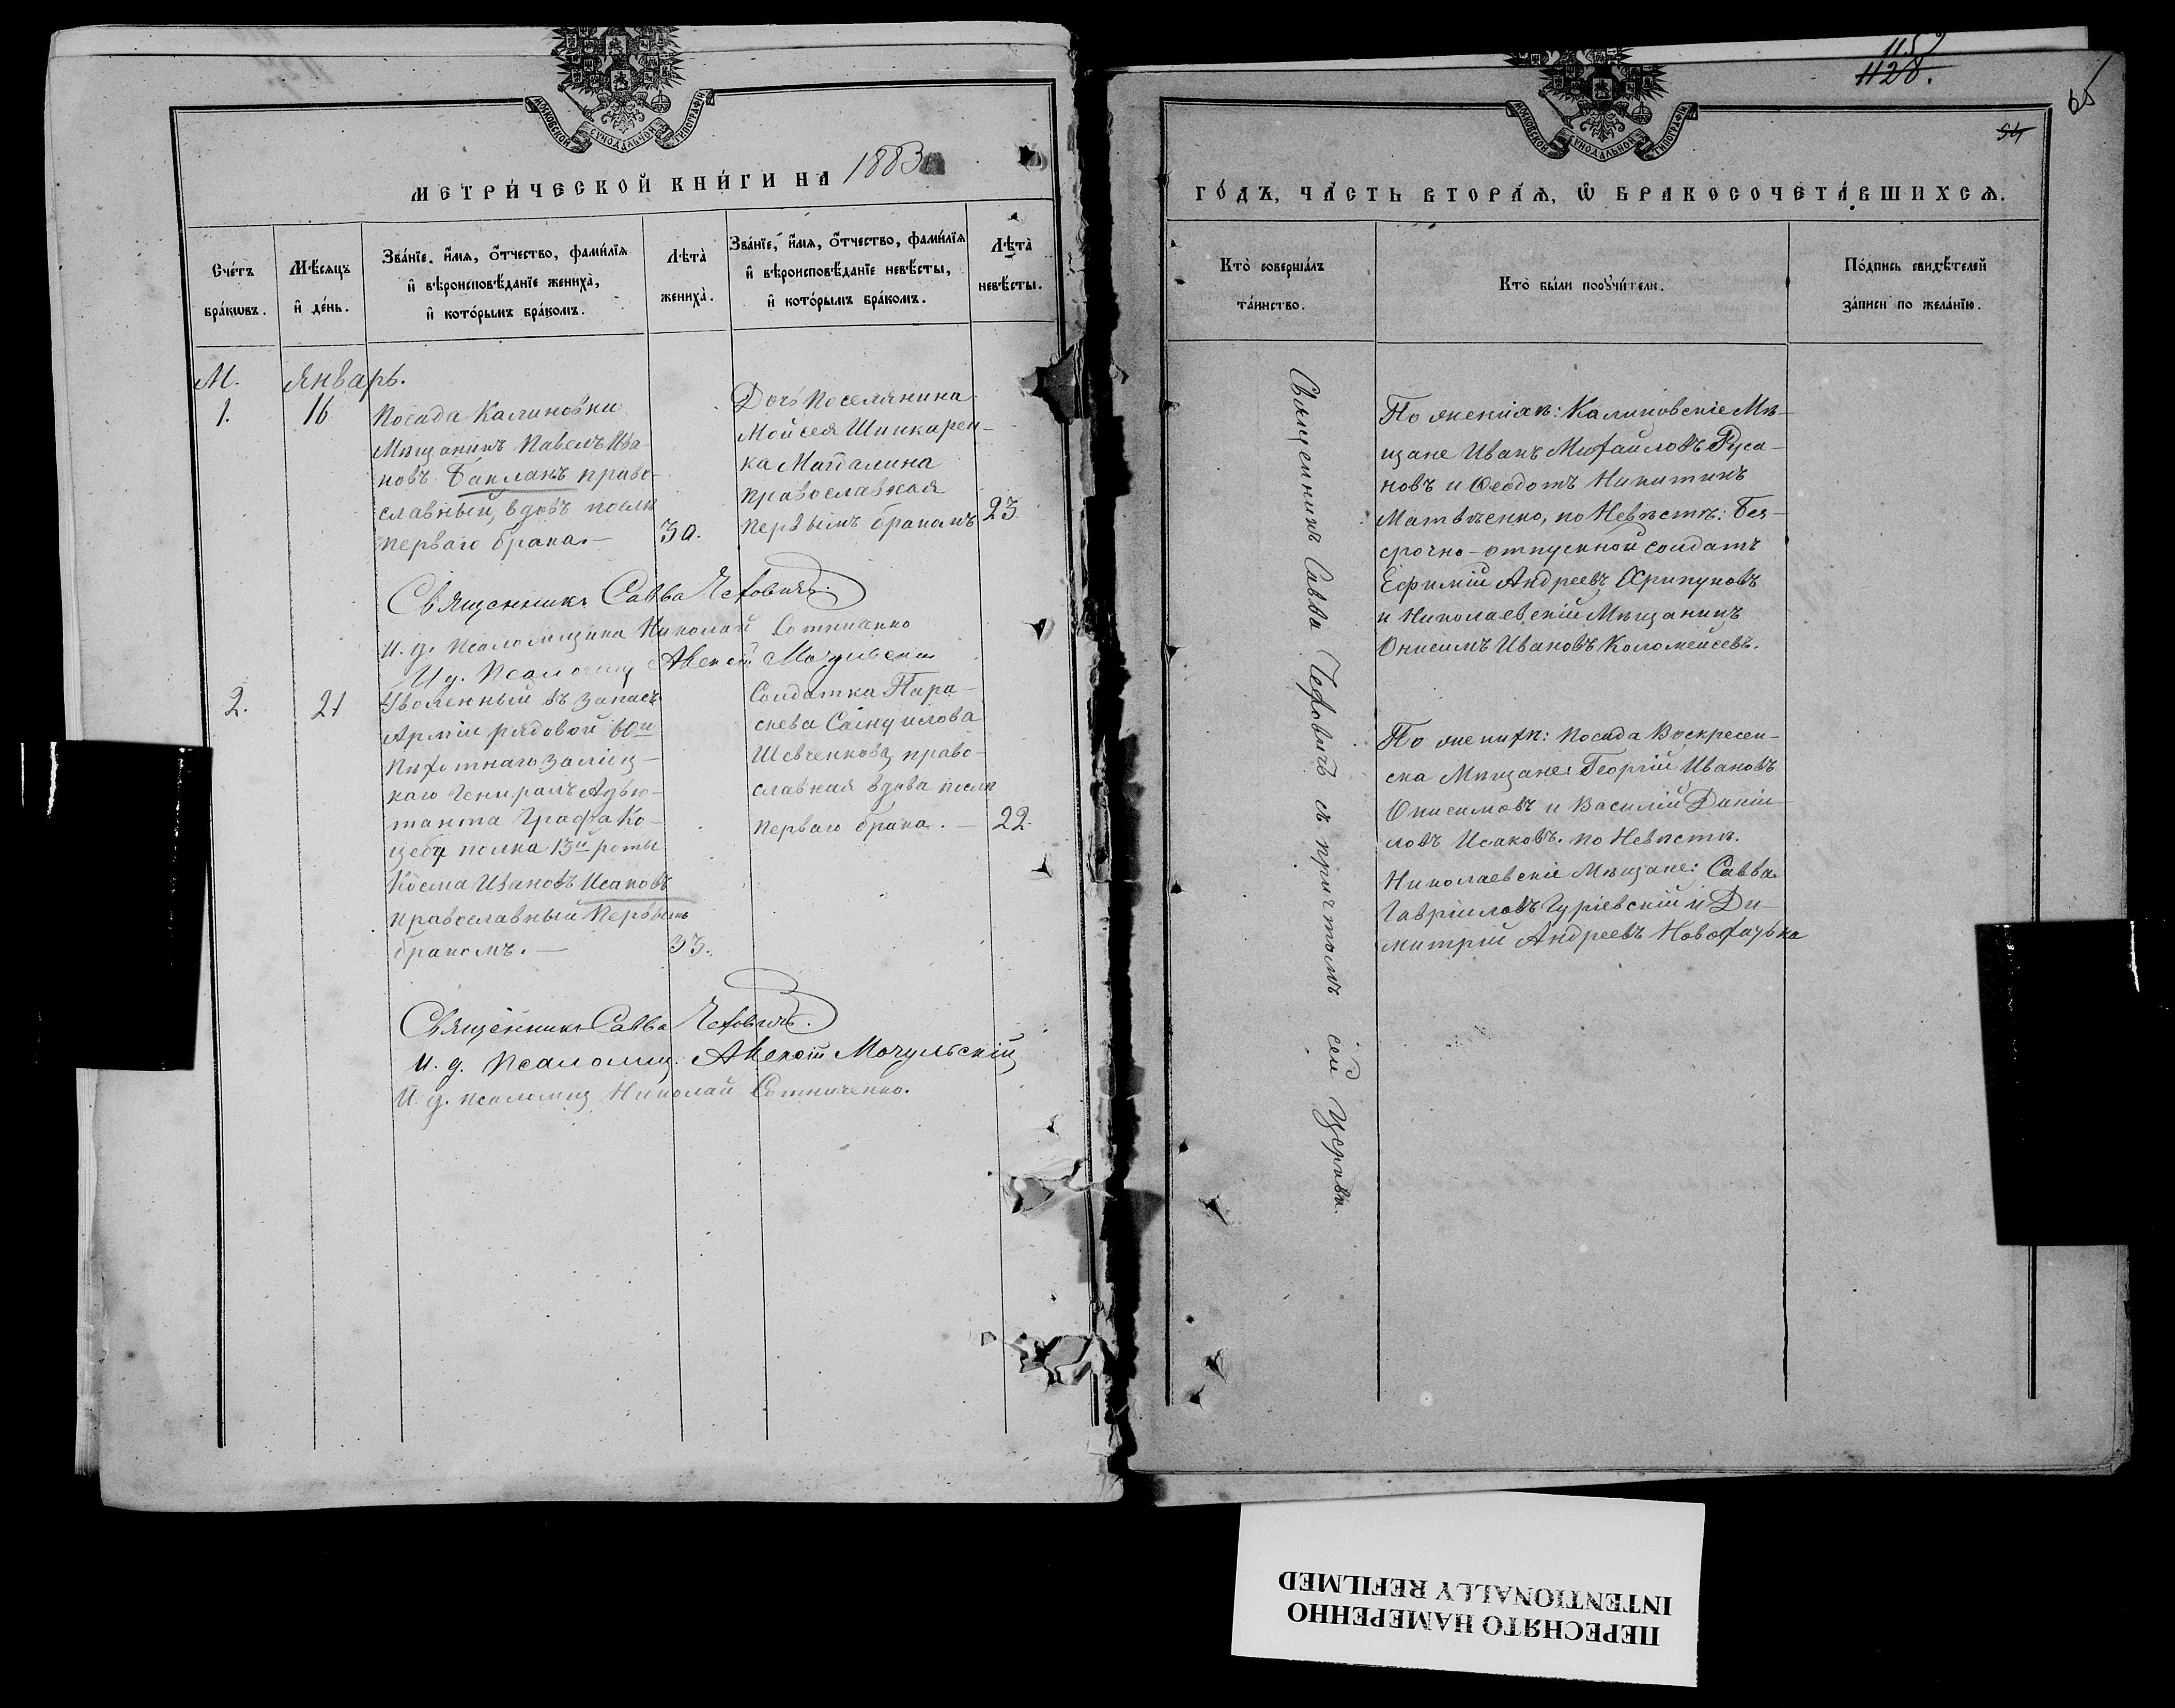 МОСКОВСКОЙ СѴНОДАЛЬНОЙ ТИПОГРАФІИ
МЕТРИ́ЧЕСКОЙ КНИ́ГИ НА 1883
Сче́тъ бра́кѡвъ.
Мѣ́сяцъ и҆ де́нь.
Зва́нїе, и҆́мѧ, ѻ҆́тчество, фами́лїѧ
и҆ вѣроисповѣ́данїе жениха̀,
и҆ кото́рымъ бра́комъ.
Лѣта̀ жениха̀.
Зва́нїе, и҆́мѧ, ѻ҆́тчество, фами́лїѧ
и҆ вѣроисповѣ́данїе невѣ́сты,
и҆ кото́рымъ бра́комъ.
Лѣта̀ невѣ́сты.
М. Январь.
1. 16
Посада Калиновки
Мѣщанинъ Павелъ Ива-
новъ Бакланъ право-
славный, вдовъ послѣ
перваго брака.—
30.
Дочь Поселянина
Мойсея Шинкарен-
ка Магдалина
православная
первымъ бракомъ
23
Священникъ Савва Чеховичъ
И. д. псаломщика Николай Сотниченко
И д. Псаломщ Алексѣй Мочульскій
2. 21
Уволенный въ запасъ
Арміи рядовой 60й
пѣхотнаго Замосц-
каго Генералъ Адъю-
танта Графа Ко-
цебу полка 13й роты
Косма Ивановъ Исаковъ
православный первымъ
бракомъ.—
33.
Солдатка Пара-
скева
Шевченкова, право-
славная вдова послѣ
перваго брака.—
22
Священникъ Савва Чеховичъ.
И. д. Псаломщ. Алексѣй Мочульскій
И. д. псаломщ Николай Сотниченко.
1159
1128.
65
54
МОСКОВСКОЙ СѴНОДАЛЬНОЙ ТИПОГРАФІИ
ГО́ДЪ, ЧА́СТЬ ВТОРА́Ѧ, Ѡ҆ БРАКОСОЧЕТА́ВШИХСѦ.
Кто̀ соверша́лъ
та́инство.
Кто̀ бы́ли порꙋчи́тели.
По́дпись свидѣ́телей
за́писи по жела́нїю.
Священникъ Савва Чеховичъ съ причтомъ сей Церкви.
По женихѣ: Калиновскіе Мѣ-
щане Иванъ Михайловъ Руса-
новъ и Ѳеодотъ Никитинъ
Матвѣенко, по Невѣстѣ: Без-
срочно-отпускной солдатъ
Ефимій Андреевъ Хрипуновъ
и Николаевскій Мѣщанинъ
Онисимъ Ивановъ Коломейсевъ.
По женихѣ: Посада Воскресен-
ска Мѣщане: Георгій Ивановъ
Онисимовъ и Василій Даніи-
ловъ Исаковъ. по Невѣстѣ.
Николаевскіе Мѣщане: Савва
Гавріиловъ Гуріевскій и Ди-
митрій Андреевъ Новохацька
ПЕРЕСНЯТО НАМЕРЕННО
INTENTIONALLY REFILMED